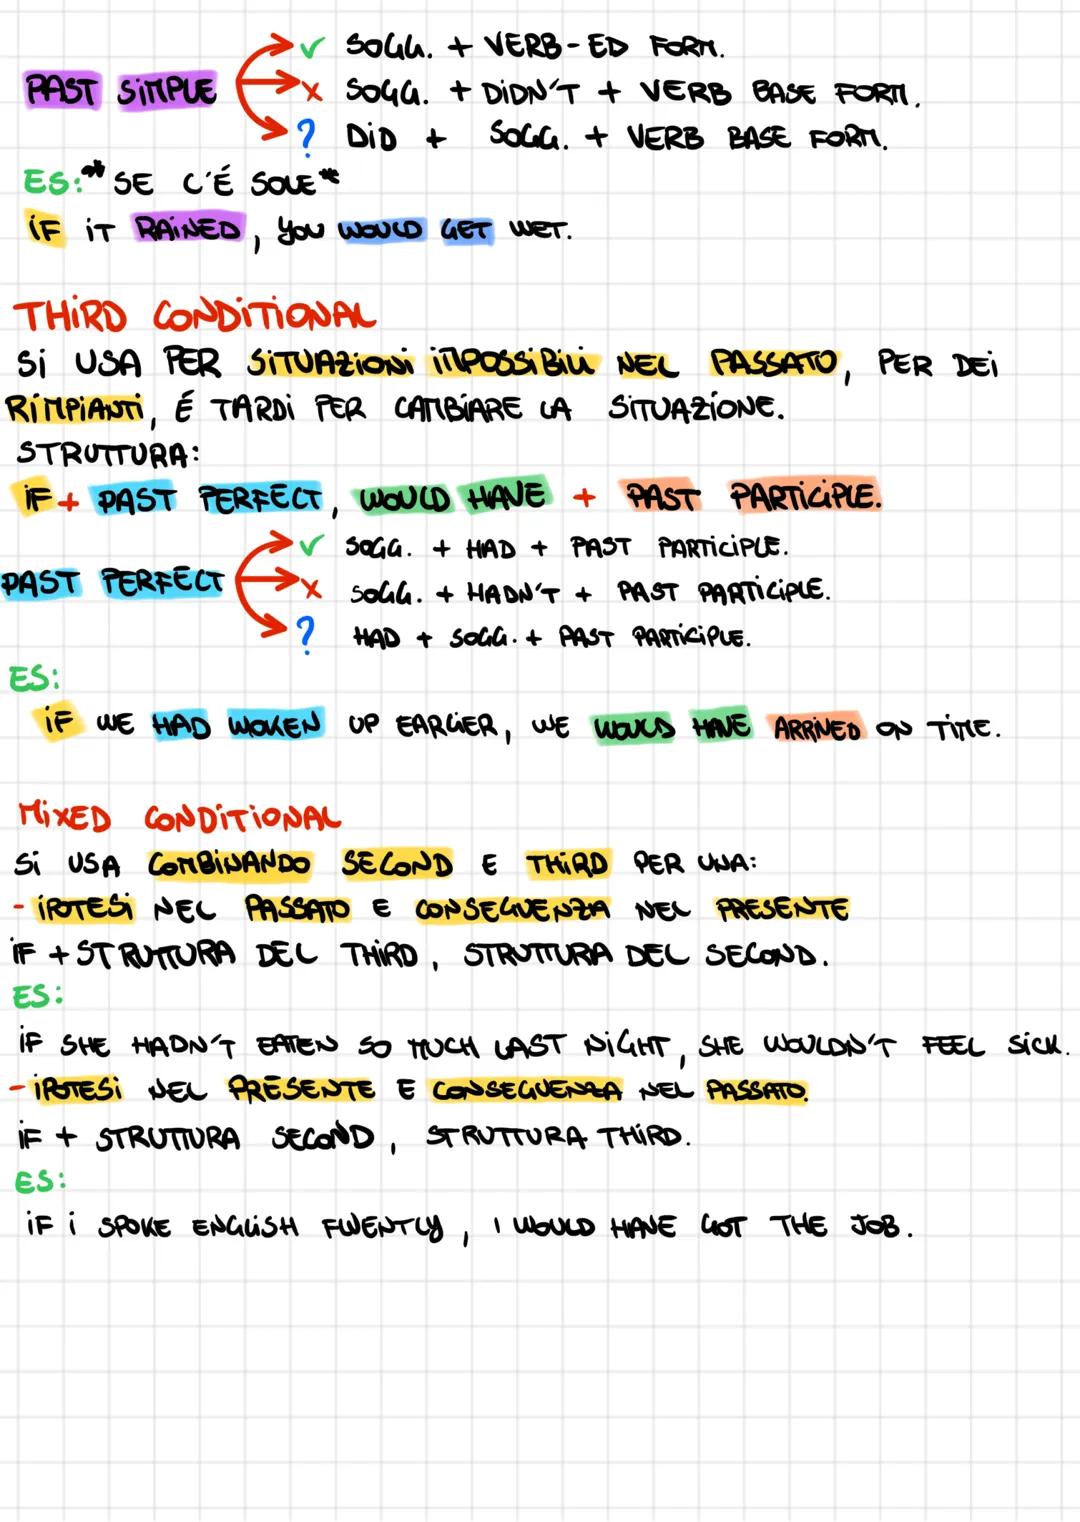 ✓ SOGG. + VERB-ED FORM.
PAST SIMPLE
x SOGG. + DIDN'T + VERB BASE FORM.
? DID + SOGG. + VERB BASE FORM.
ES: *SE C'É SOLE*
IF IT RAINED, YOU WOULD GET WET.
THIRD CONDITIONAL
SI USA PER SITUAZIONI IMPOSSIBILI NEL PASSATO, PER DEI
RIMPIANTI, É TARDI PER CAMBIARE LA SITUAZIONE.
STRUTTURA:
IF + PAST PERFECT, WOULD HAVE + PAST PARTICIPLE.
✓ SOGG. + HAD + PAST PARTICIPLE.
PAST PERFECT
x SOGG. + HADN'T + PAST PARTICIPLE.
? HAD + SOGG. + PAST PARTICIPLE.
ES:
IF WE HAD WOKEN UP EARLIER, WE WOULD HAVE ARRIVED ON TIME.
MIXED CONDITIONAL
SI USA COMBINANDO SECOND E THIRD PER UNA:
- IPOTESI NEL PASSATO E CONSEGUENZA NEL PRESENTE
IF + STRUTTURA DEL THIRD, STRUTTURA DEL SECOND.
ES:
IF SHE HADN'T EATEN SO MUCH LAST NIGHT, SHE WOULDN'T FEEL SICK.
- IPOTESI NEL PRESENTE E CONSEGUENZA NEL PASSATO.
IF + STRUTTURA SECOND, STRUTTURA THIRD.
ES:
IF I SPOKE ENGLISH FLUENTLY, I WOULD HAVE GOT THE JOB.